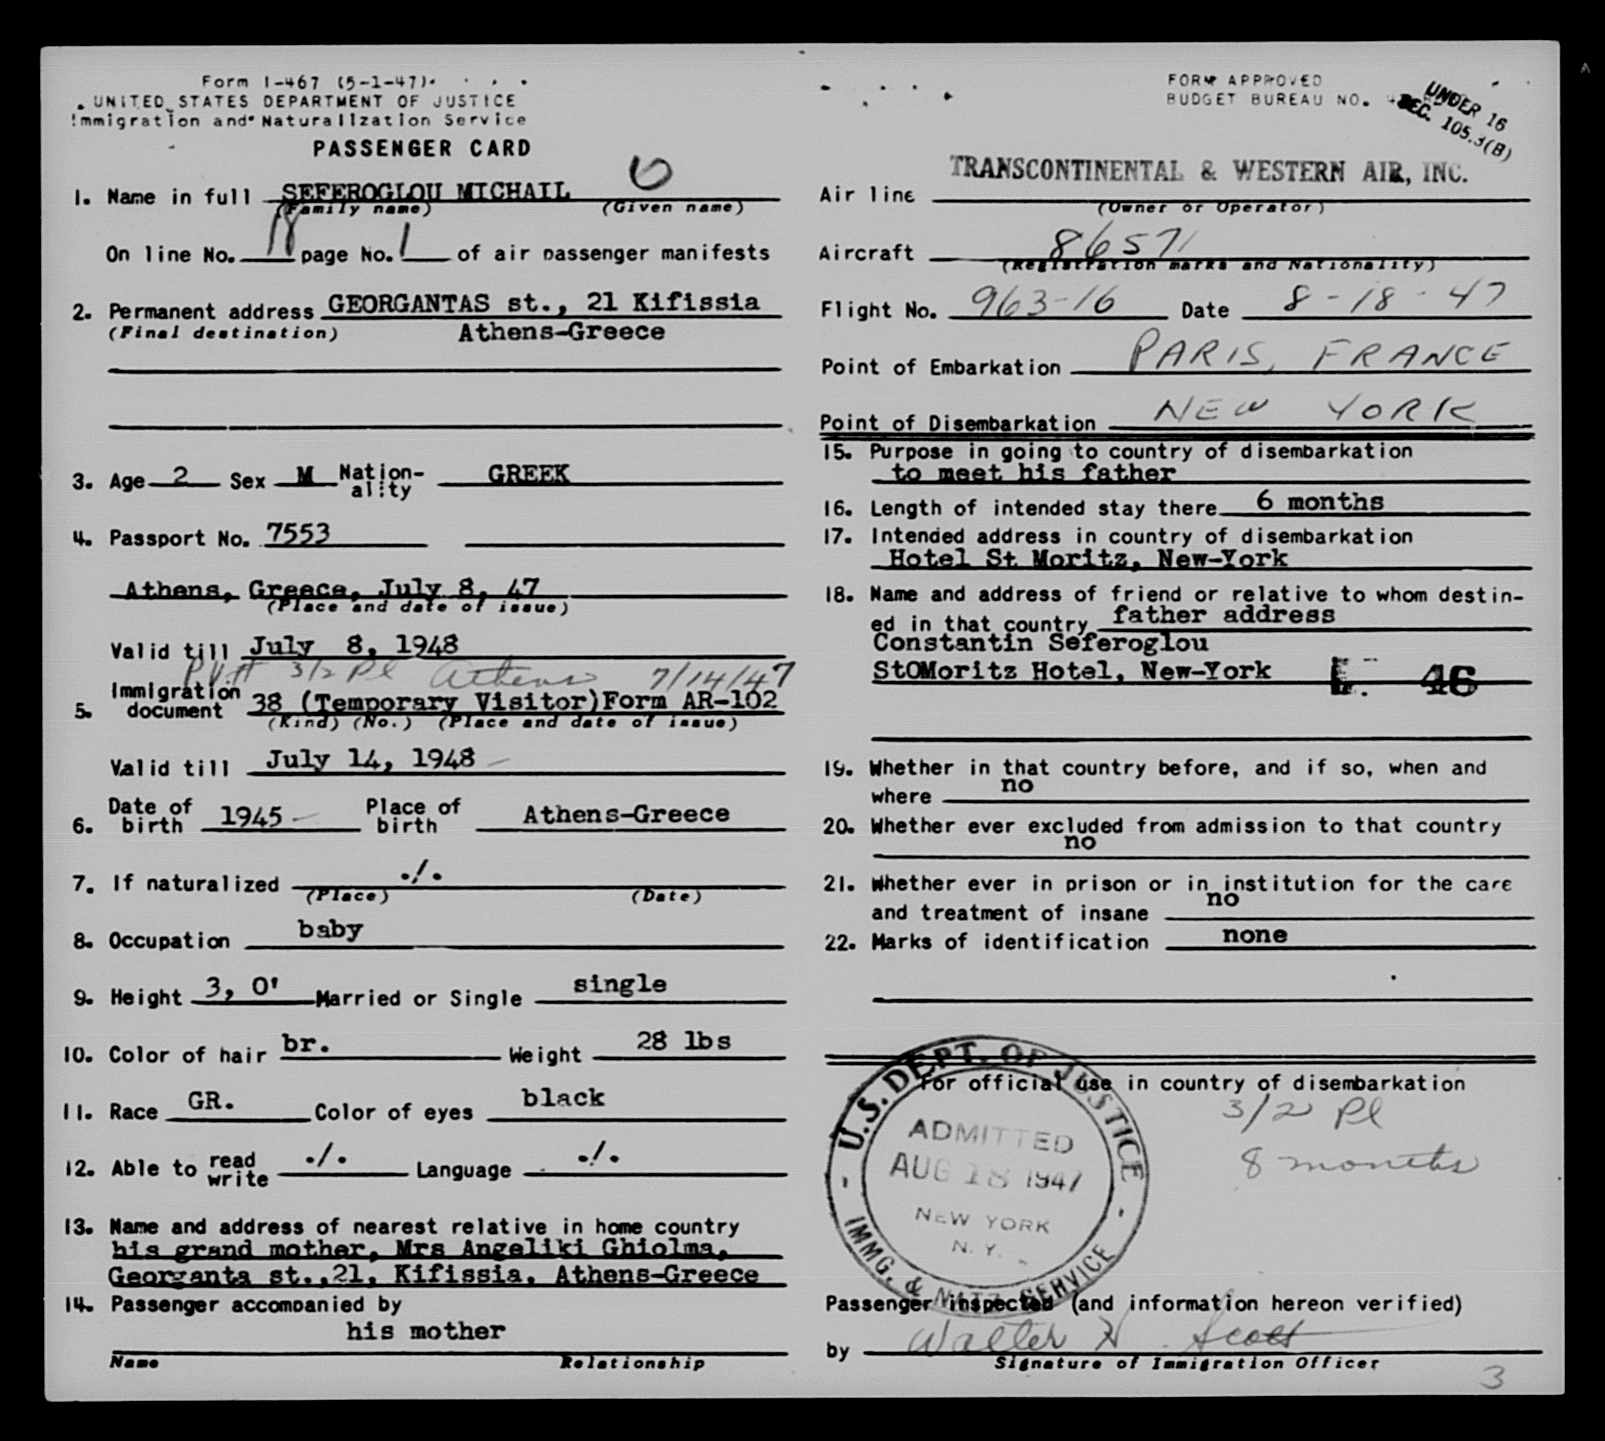 Form I-467 (5-1-47)
UNITED STATES DEPARTMENT OF JUSTICE
Immigration and Naturalization Service
PASSENGER CARD
1. Name in full SEFEROGLOU MICHAIL
(Family name) (Given name)
On line No. 18 page No. 1 of air passenger manifests
2. Permanent address GEORGANTAS st., 21 Kifissia
(Final destination) Athens-Greece
3. Age 2 Sex M Nation-ality GREEK
4. Passport No. 7553
Athens, Greece, July 8, 47
(Place and date of issue)
Valid till July 8, 1948
P.V.# 3/2 Pl Athens 7/14/47
5. Immigration document 38 (Temporary Visitor) Form AR-102
(Kind) (No.) (Place and date of issue)
Valid till July 14, 1948
6. Date of birth 1945 Place of birth Athens-Greece
7. If naturalized ./.
(Place) (Date)
8. Occupation baby
9. Height 3, 0' Married or Single single
10. Color of hair br. Weight 28 lbs
11. Race GR. Color of eyes black
12. Able to read write ./. Language ./.
13. Name and address of nearest relative in home country
his grand mother, Mrs Angeliki Ghiolma,
Georganta st.,21, Kifissia, Athens-Greece
14. Passenger accompanied by
his mother
Name Relationship
FORM APPROVED
BUDGET BUREAU NO.
UNDER 16
SEC. 105.3(B)
TRANSCONTINENTAL & WESTERN AIR, INC.
Air line
(Owner or Operator)
Aircraft 86571
(Registration marks and Nationality)
Flight No. 963-16 Date 8-18-47
Point of Embarkation PARIS, FRANCE
Point of Disembarkation NEW YORK
15. Purpose in going to country of disembarkation
to meet his father
16. Length of intended stay there 6 months
17. Intended address in country of disembarkation
Hotel St Moritz, New-York
18. Name and address of friend or relative to whom destin-
ed in that country father address
Constantin Seferoglou
StOMoritz Hotel, New-York 46
19. Whether in that country before, and if so, when and
where no
20. Whether ever excluded from admission to that country
no
21. Whether ever in prison or in institution for the care
and treatment of insane no
22. Marks of identification none
For official use in country of disembarkation
3/2 Pl
8 months
U.S. DEPT. OF JUSTICE
ADMITTED
AUG 18 1947
NEW YORK
N. Y.
IMMG. & NATZ. SERVICE
Passenger inspected (and information hereon verified)
by Walter H Scott
Signature of Immigration Officer
3